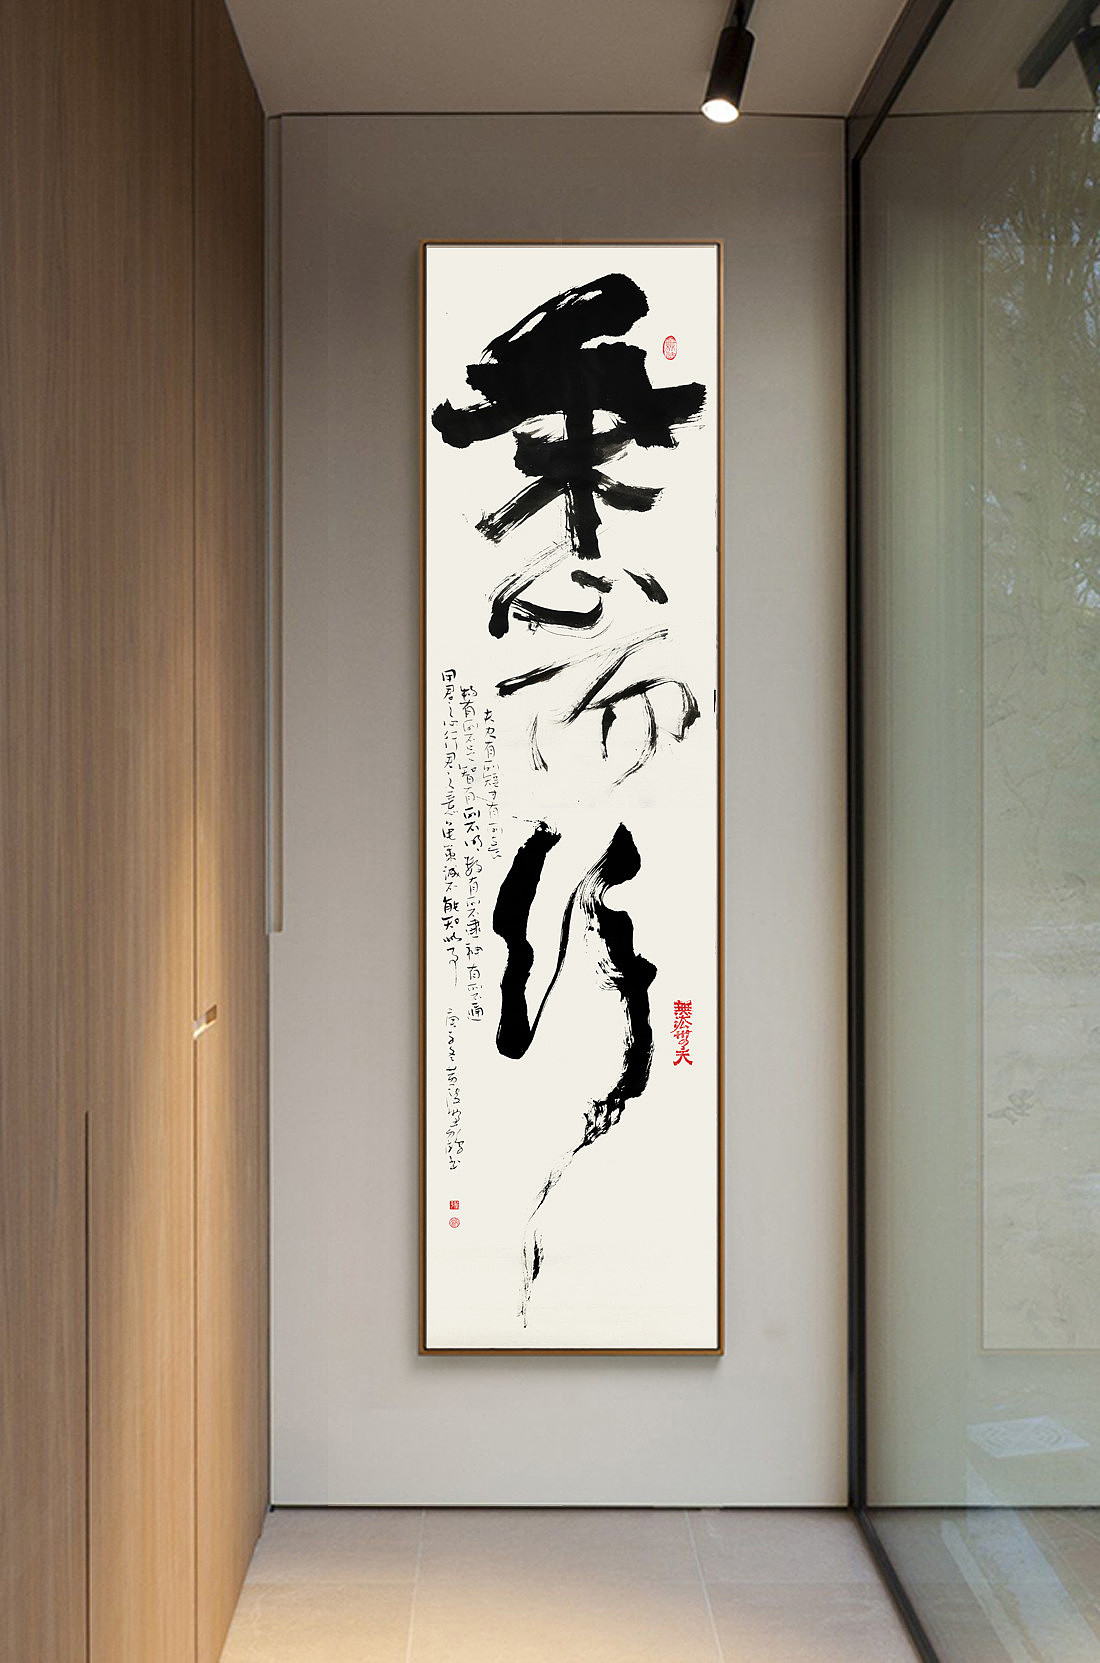 秉心而行
夫尺有所短寸有所長
物有所不足智有所不明數有所不逮神有所不通
用君之心行君之意龜策誠不能知此事
庚子冬